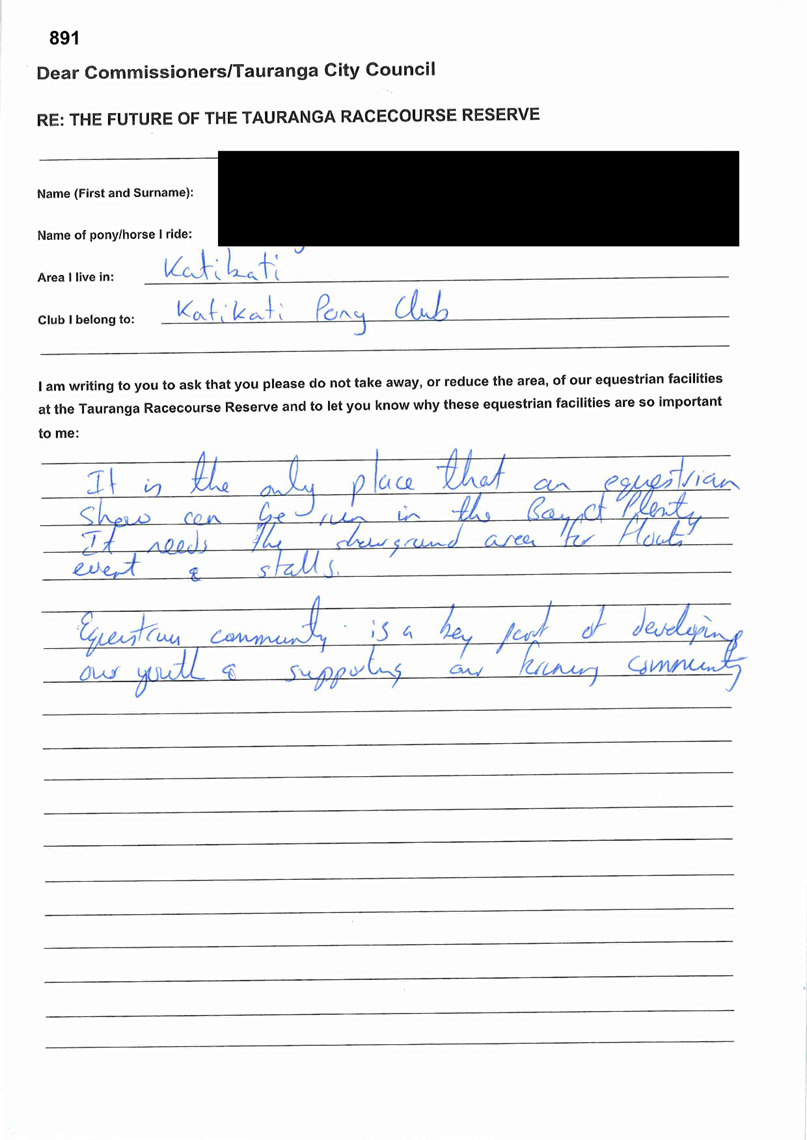 891
Dear Commissioners/Tauranga City Council
RE: THE FUTURE OF THE TAURANGA RACECOURSE RESERVE
Name (First and Surname):
Name of pony/horse I ride:
Area I live in: Katikati
Club I belong to: Katikati Pony Club
I am writing to you to ask that you please do not take away, or reduce the area, of our equestrian facilities
at the Tauranga Racecourse Reserve and to let you know why these equestrian facilities are so important
to me:
It is the only place that an equestrian
show can be run in the Bay of Plenty
It needs the showground area for floats
event & stalls.
Equestrian community is a key part of developing
our youth & supporting our community